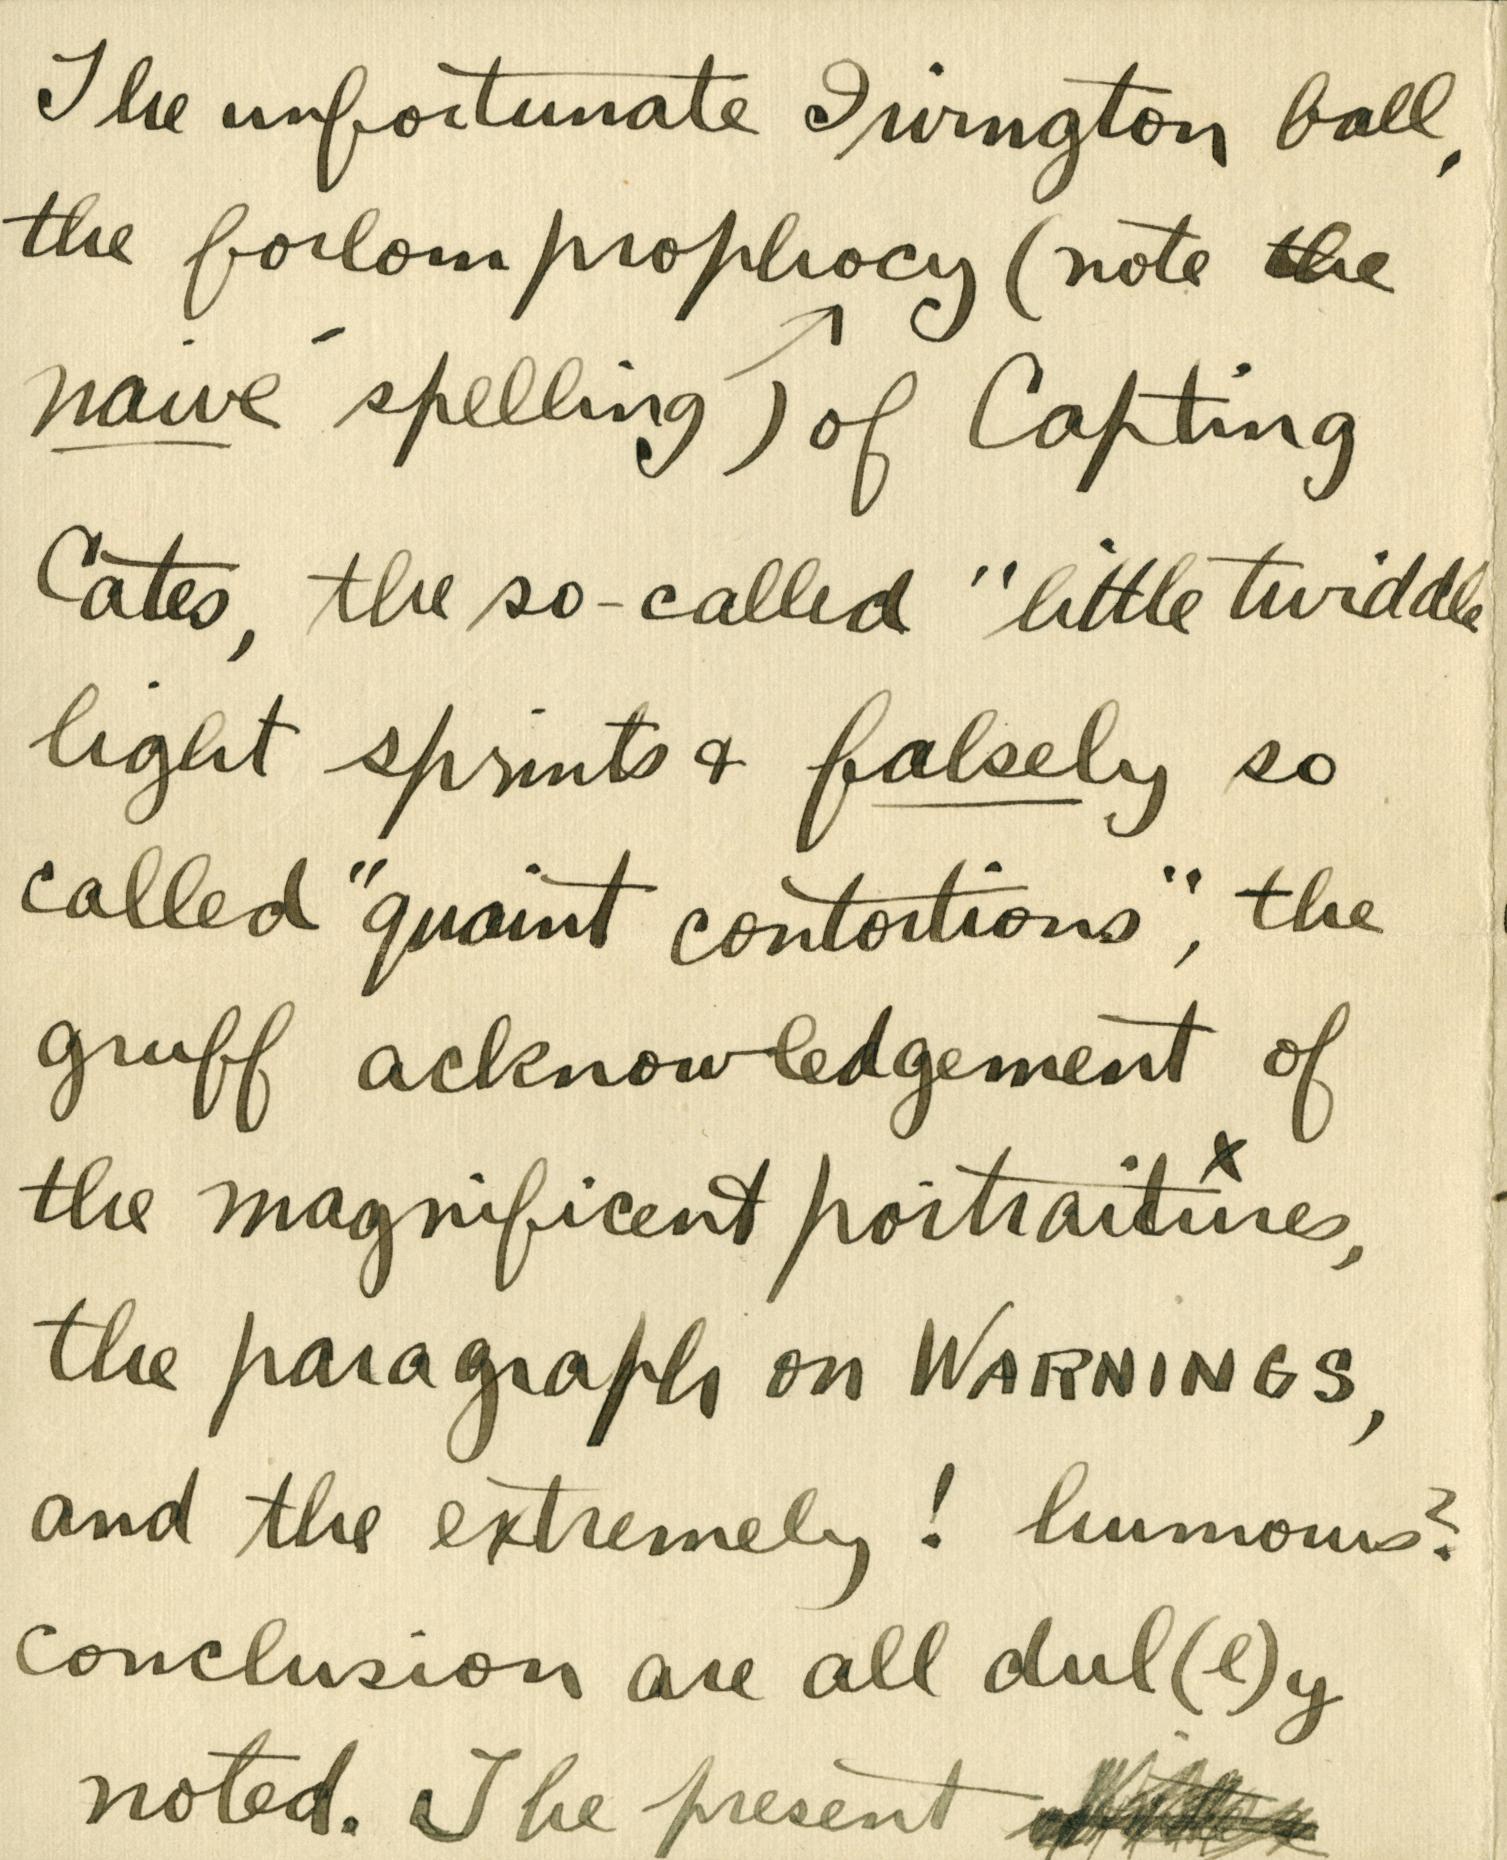 The unfortunate Irvington ball,
the forlorn prophocy (note the
naïve spelling) of Capting
Cates, the so-called "little twiddle
light sprints & falsely so
called "quaint contortions", the
gruff acknowledgement of
the magnificent portraitures,
x
the paragraph on WARNINGS,
and the extremely! humorus?
conclusion are all dul(l)y
noted. The present